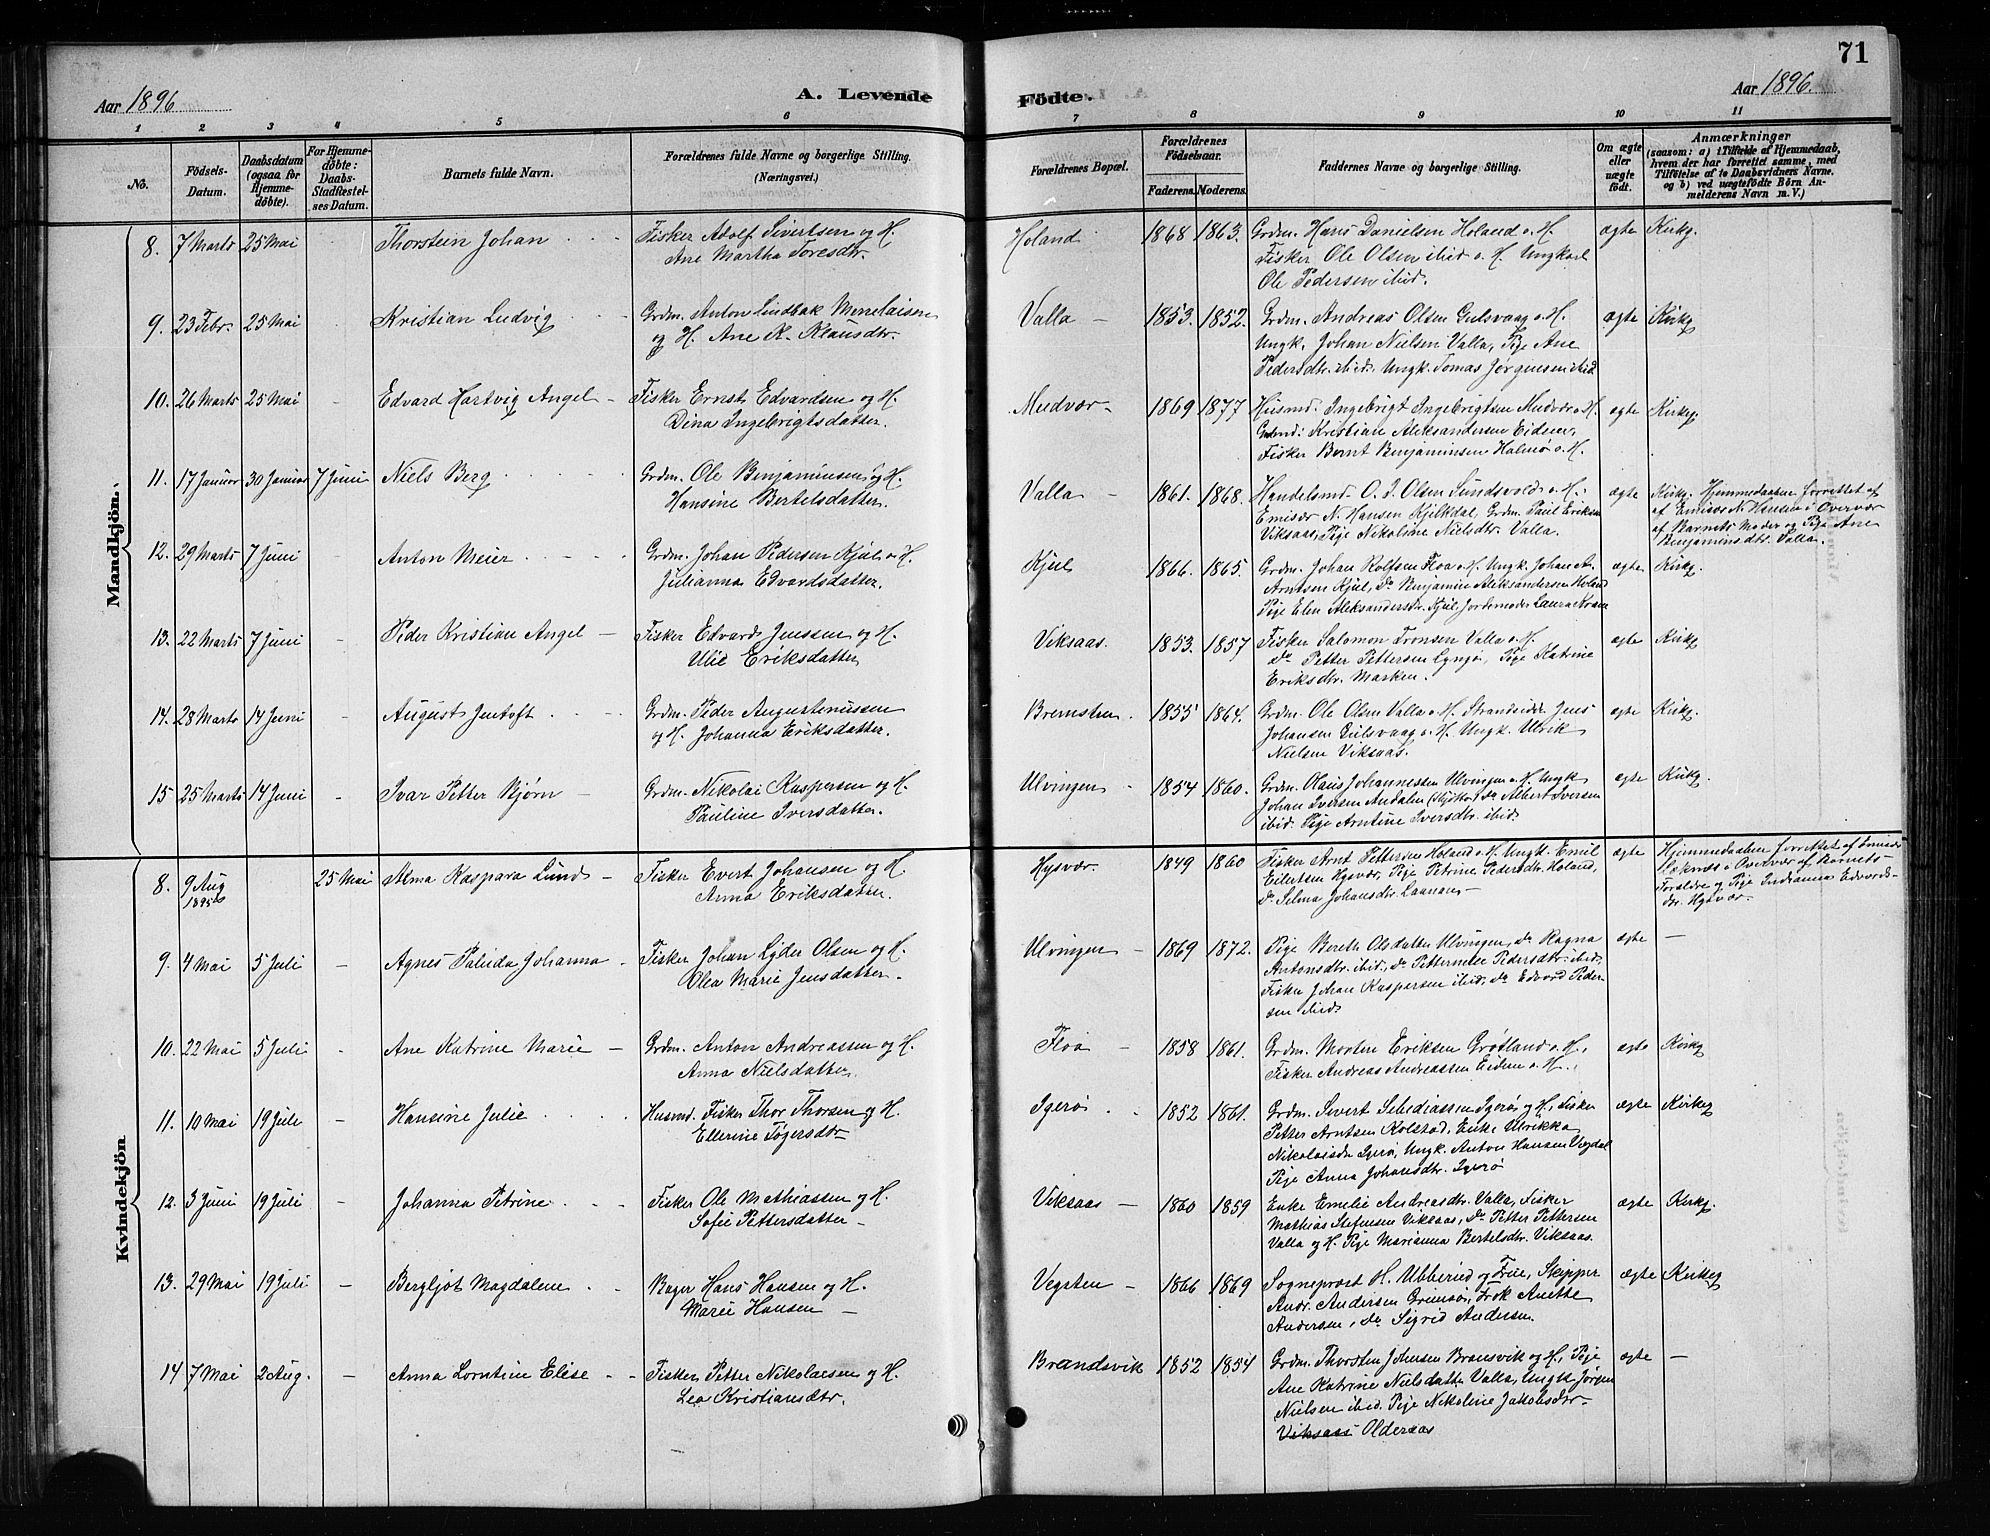 71
Aar 1896
A. Levende
Födte.
Aar 1896.
1 2 3 4 5 6 7 8 9 10 11
No.
Födsels-
Datum.
Daabsdatum
(ogsaa for
Hjemme-
döbte).
For Hjemme-
döbte:
Daabs-
Stadfæstel-
ses Datum.
Barnets fulde Navn.
Forældrenes fulde Navne og borgerlige Stilling.
(Næringsvei.)
Forældrenes Bopæl.
Forældrenes
Födselsaar.
Faderens. Moderens.
Faddernes Navne og borgerlige Stilling.
Om ægte
eller
uægte
födt.
Anmærkninger
(saasom: a) i Tilfælde af Hjemmedaab,
hvem der har forrettet samme, med
Tilföielse af to Daabsvidners Navne.
og b) ved uægtefödte Börn An-
melderens Navn m. V.)
Mandkjön.
8. 7 Marts 25 Mai Thorstein Johan Fisker Adolf Sivertsen og H.
Ane Martha Toresdtr.
Holand 1868 1863. Grdm. Hans Danielsen Holand o. H. ægte Kirkg.
Fisker Ole Olsen ibid o. H. Ungkarl
Ole Pedersen ibid.
9. 23 Febr. 25 Mai Kristian Ludvig Grdm. Anton Lindbak Menelaisen
og H. Ane K. Klausdtr.
Valla 1853. 1852. Grdm. Andreas Olsen Gulsvaag o. H. ægte Kirkg
Ungk. Johan Nielsen Valla, Pige Ane
Pedersdtr. ibid. Ungk. Tomas Jørgensen ibid
10. 26 Marts 25 Mai - Edvard Hartvig Angel - Fisker Ernst Edvardsen og H.
Dina Ingebrigtsdatter.
Mudvær 1869 1877 Husmd. Ingebrigt Ingebrigtsen Mudvær o. H. ægte Kirkg.
Grdmd: Kristian Aleksandersen Eidem,
Fisker Bernt Benjaminsen Holmø o. H.
11. 17 Januar 30 Januar 7 Juni Niels Berg Grdm. Ole Benjaminsen og H.
Hansine Bertelsdatter.
Valla - 1861. 1868. Handelsmd. O. J. Olsen Sundsvold o. H. ægte Kirkg. Hjemmedaaben forrettet af
Emisær N. Hansen Kjilkdal, Grdm. Paul Eriksen af Emisær N. Hansen i Overvær
Viksaas, Pige Nikoline Nielsdtr. Valla. af Barnets Moder og Pige Ane
Benjaminsdtr. Valla.
12. 29 Marts 7 Juni Anton Meier Grdm. Johan Pedersen Kjul o. H.
Julianna Edvardsdatter.
Kjul 1866. 1865. Grdm. Johan Rolfsen Floa o. H. Ungk. Johan An. ægte Kirkg.
Arntsen Kjul, Do Benjamin Aleksandersen Holand
Pige Elen Aleksandersdtr. Kjul, Jordemoder Laura Kram
13. 22 Marts 7 Juni - Peder Kristian Angel - Fisker Edvard Jenssen og H.
Ulie Eriksdatter
Viksaas. 1853. 1857 Fisker Salomon Tronsen Valla o. H. ægte Kirkg
Do Petter Pettersen Lyngø, Pige Katrine
Eriksdtr. Marken.
14. 28 Marts 14 Juni - August Jentoft Grdm. Peder Augustinussen
og H. Johanna Eriksdatter.
Bremsten. 1855 1864. Grdm. Ole Olsen Valla o. H. Strandsidder Jens ægte Kirkg.
Johansen Gulsvaag o. H. Ungk. Ulrik
Nielsen Viksaas.
15 25 Marts 14 Juni - Ivar Petter Bjørn Grdm. Nikolai Kaspersen og H.
Pauline Iversdatter.
Ulvingen - 1854 1860. Grdm. Olaus Johannessen Ulvingen o. H. Ungk ægte Kirkg.
Johan Iversen Andalen Do Albert Iversen
ibid. Pige Arntine Iversdtr. ibid.
Kvindekjön
8. 9 Aug 25 Mai Alma Kaspara Lund - Fisker Evert Johansen og H.
1895
Anna Eriksdatter.
Hysvær. 1849 1860 Fisker Arnt Pettersen Holand o. H. Ungk. Emil ægte Hjemmedaaben forrettet af
Eilertsen Hysvær, Pige Petrine Pedersdtr. Holand, i Overvær af Barnets
Do Selma Johansdtr. Laanan, - Foræld​re og Pige Indianna Edvards-
dtr. Hysvær.
9. 4 Mai 5 Juli - Agnes Palida Johanna Fisker Johan Lyder Olsen og H.
Olea Marie Jensdatter.
Ulvingen - 1869 1872. Pige Bereth Olsdatter Ulvingen, Do Ragna ægte -
Antonsdtr. ibid., Do Petternelle Pedersdtr. ibid,
Fisker Johan Kaspersen ibid, Do Edvard Peder-
sen ibid
10. 22 Mai 5 Juli - Ane Katrine Marie - Grdm. Anton Andreassen og H.
Anna Nielsdatter.
Floa - 1858 1861. Grdm. Morten Eriksen Grøtland o. H., ægte Kirkg
Fisker Andreas Andreassen Eidem o. H.,
11. 10 Mai 19 Juli - Hansine Julie Husmd. Fisker Thor Thorsen og H.
Ellerine Tøgersdtr
Igerø 1852 1861. Grdm. Sivert Sebediassen Igerø og H., Fisker ægte Kirkeg
Petter Arntsen Kolstad, Enke Ulrikka
Nikolaisdtr Igerø, Ungk. Anton Hansen Vegdal
Pige Anna Johansdtr. Igerø
12. 3 Juni 19 Juli - Johanna Petrine Fisker Ole Mathiassen og H.
Sofie Pettersdatter -
Viksaas - 1860 1859 Enke Emelie Andreasdtr. Valla, Fisker ægte Kirkg.
Mathias Stefensen Viksaas, Do Petter Pettersen
Valla og H. Pige Marianna Bertelsdtr. Viksaas.
13. 29 Mai 19 Juli - Bergljot Magdalene Bager Hans Hansen og H.
Marie Hansen -
Vegsten - 1866 1869 Sogneprest H. Ubberud og Frue, Skipper ægte Kirkeg
Andr. Andersen Grimsø, Frøk Anette
Andersen, Do Sigrid Andersen.
14 7 Mai 2 Aug. - Anna Lorntine Elise Fisker Petter Nikolaisen og H.
Lea Kristiansdtr.
Brandsvik 1852 1854 Grdm. Thorsten Johnsen Bransvik og H., Pige ægte -
Ane Katrine Nielsdatter Valla, Ungk Jørgen
Nielsen ibid. Pige Nikoline Jakobsdtr
Viksaas Olderaas